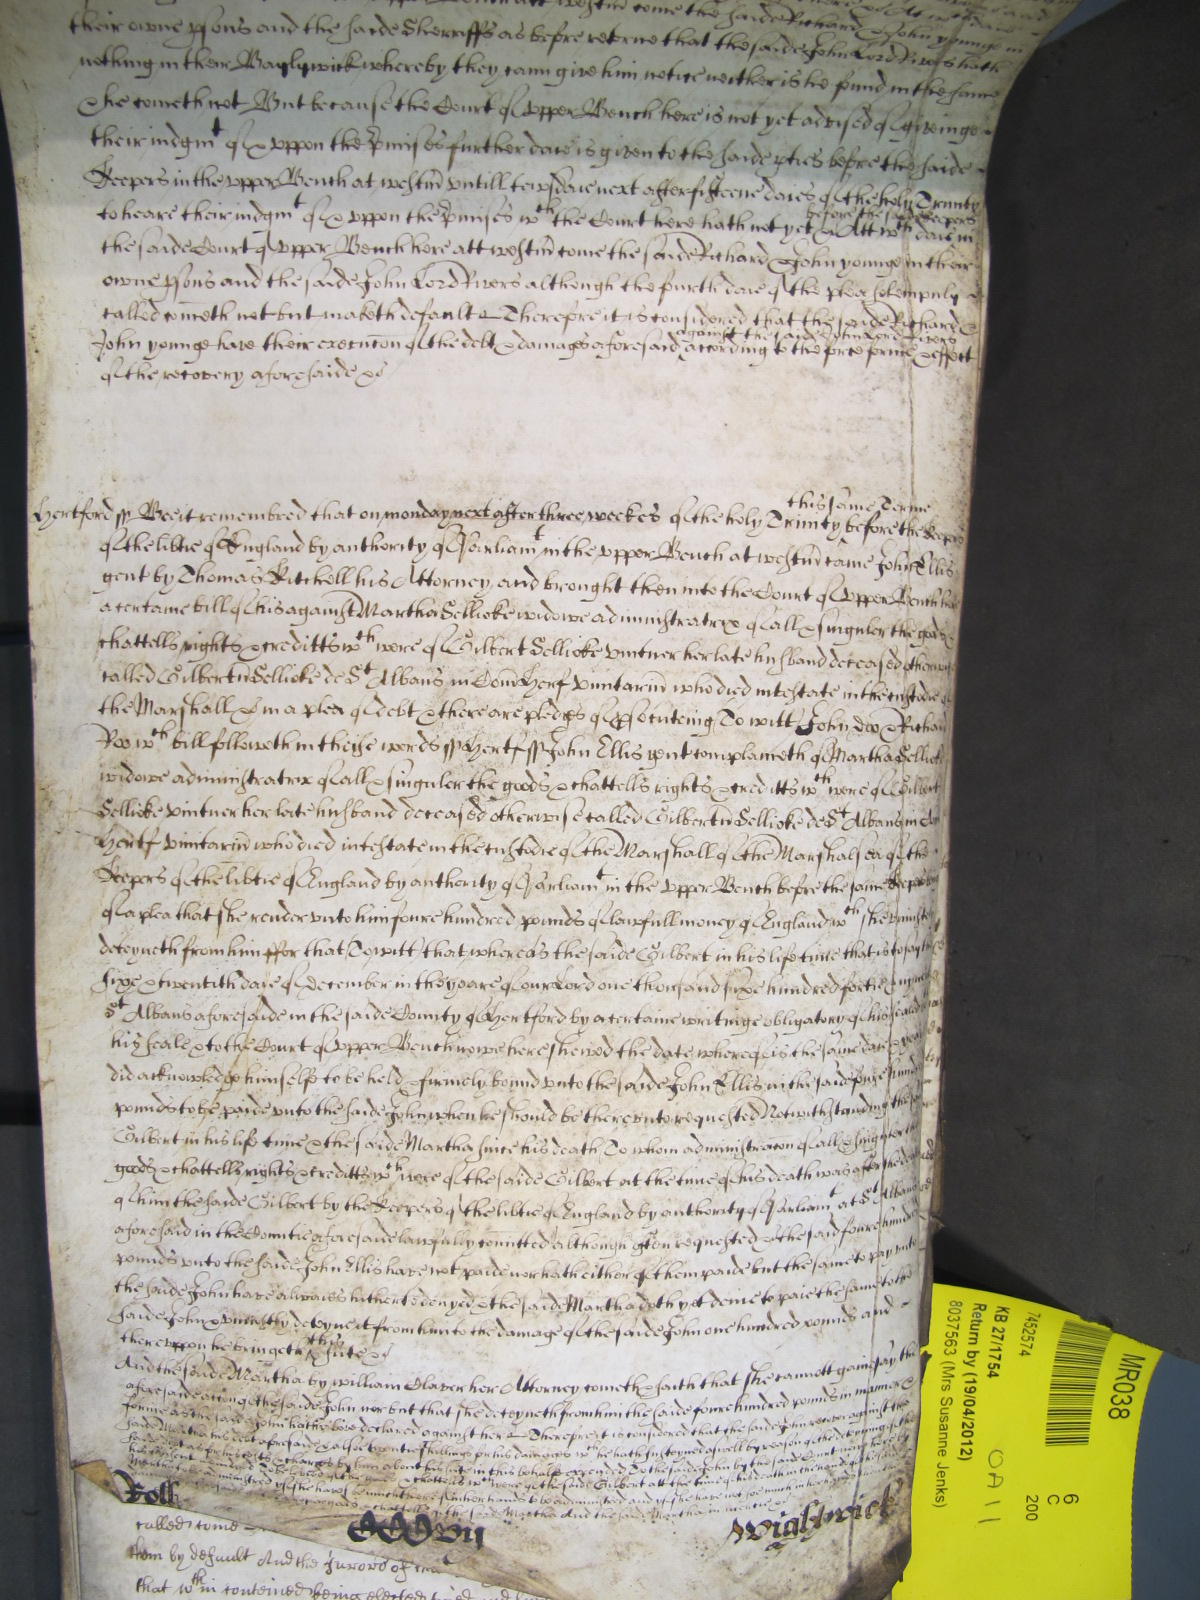 their owne psons and the saide Sherriffs as before retorne that the saide John Lord Rivers hath
nothing in their Baylywick whereby they cann give him notice neither is he found in the same
& he cometh not But because the Court of Upper Bench here is not yet advised of givinge
their iudgmt of & uppon the pmisses further daie is given to the saide pties before the saide
Keepers in the upper Bench at westm untill tewsdaie next after fifteene daies of the holy Trinity
before the said Keepers
to heare their iudgmt of & uppon the pmisses wth the Court here hath not yet & Att wch daie in
the saide Court of Upper Bench here att westm come the saide Richard & John younge in their
owne psons and the saide John Lord Rivers although the fourth daie of the plea solempnly
called cometh not but maketh default Therefore it is considered that the saide Richard &
against the saide John Lord Rivers
John younge have their execucon of the debt & damages aforesaid according to the force forme & effect
of the recovery aforesaide &c
this same Terme
Hertford ss Bee it remembred that on monday next after three weekes of the holy Trinity before the Keepers
of the libtie of England by authority of Parliamt in the upper Bench at westm came John Ellis
gent by Thomas Kitchell his Attorney and brought then into the Court of Upper Bench here
a certaine bill of his against Martha Sellioke widowe administratrix of all & singuler the goods &
chattells rights & creditts wch were of Gilbert Sellioke vintner her late husband deceased otherwise
called Gilbertu Sellioke de St Albans in Com Hertf vintariu who died intestate in the custodie of
the Marshall & in a plea of debt & there are pledges of psecuteing To witt John doo & Richard
Roo wch bill followeth in theise words ss Hertf ss John Ellis gent complaineth of Martha Sellioke
widowe administratrix of all & singuler the goods & chattells rights & creditts wch were of Gilbert
Sellioke vintner her late husband deceased otherwise called Gilbertu Sellioke de St Albans in Com
Hertf vintariu who died intestate in the custodie of the Marshall of the Marshalsea of the
Keepers of the libtie of England by authority of Parliamt in the upper Bench before the same Keepers
of a plea that she render unto him foure hundred pounds of lawfull money of England wch she uniustly
deteyneth from him ffor that To witt that whereas the saide Gilbert in his life time that is to say the
sixe & twentith daie of December in the yeare of our Lord one thousand sixe hundred fortie
St Albans aforesaide in the saide County of Hertford by a certaine writinge obligatory of his sealed
his seale & to the Court of Upper Bench nowe here shewed the date whereof is the same daie & yeare
did acknowledge himselfe to be held & firmely bound unto the saide John Ellis in the saide foure hundred
pounds to be paide unto the saide John when he should be thereunto requested Notwithstanding the
Gilbert in his life time & the saide Martha since his death To whom administracon of all & singuler the
goods & chattells rights & creditts wch were of the saide Gilbert at the time of his death was after the death
of him the saide Gilbert by the Keepers of the libtie of England by authority of Parliamt at St Albans
aforesaid in the Countie aforesaid lawfully comitted although often requested the said foure hundred
pounds unto the saide John Ellis have not paide nor hath either of them paide but the same to pay unto
the saide John have alwaies hitherto denyed & the saide Martha doth yet denie to paie the same to the
saide John & uniustly deteyne it from him to the damage of the saide John one hundred pounds and
thereuppon he bringeth this suite &c
And the saide Martha by William Claver her Attorney cometh & saith that she cannott gainesay the
aforesaide accon of the saide John nor but that she deteyneth from him the saide foure hundred pounds in manner &
forme as the said John hath above declared against her Therefore it is considered that the saide John recover against the
saide Martha his debt aforesaide
Roll
called come
Wightwick
them by default And the Jurors of
that wthin conteined being elected tried and
MR038
7452574
6
C
200
KB 27/1754
Return by (19/04/2012)
8037563 (Mrs Susanne Jenks)
OA 11